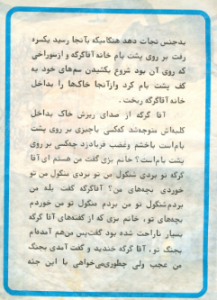 بدجنس نجات دهد هنگامیکه بآنجا رسید یکسره
رفت بر روی پشت بام خانه آقاگرگه و ازسوراخی
که روی آن بود شروع بکشیدن سم‌های خود به
کف پشت بام کرد وازآنجا خاک‌ها را بداخل
خانه آقاگرگه ریخت .
آقا گرگه از صدای ریزش خاک بداخل
کلبه‌اش متوجه‌شد که‌کسی یاچیزی بر روی پشت
بام‌است باخشم وغضب فریادزد چه‌کسی بر روی پشت
بام‌است؟ خانم بزی گفت من هستم ای آقا
گرگه تو بردی شنگول من تو بردی منگول من تو
خوردی بچه‌های من؟ آقاگرگه گفت بله من
بردم‌شنگول تو من بردم منگول تو من خوردم
بچه‌های تو، خانم بزی که از گفته‌های آقا گرگه
بسیار ناراحت شده بود گفت‌پس من‌هم آمده‌ام
بجنگ تو، آقا گرگه خندید و گفت آمدی بجنگ
من عجب ولی چطوری‌می‌خواهی با این جثه